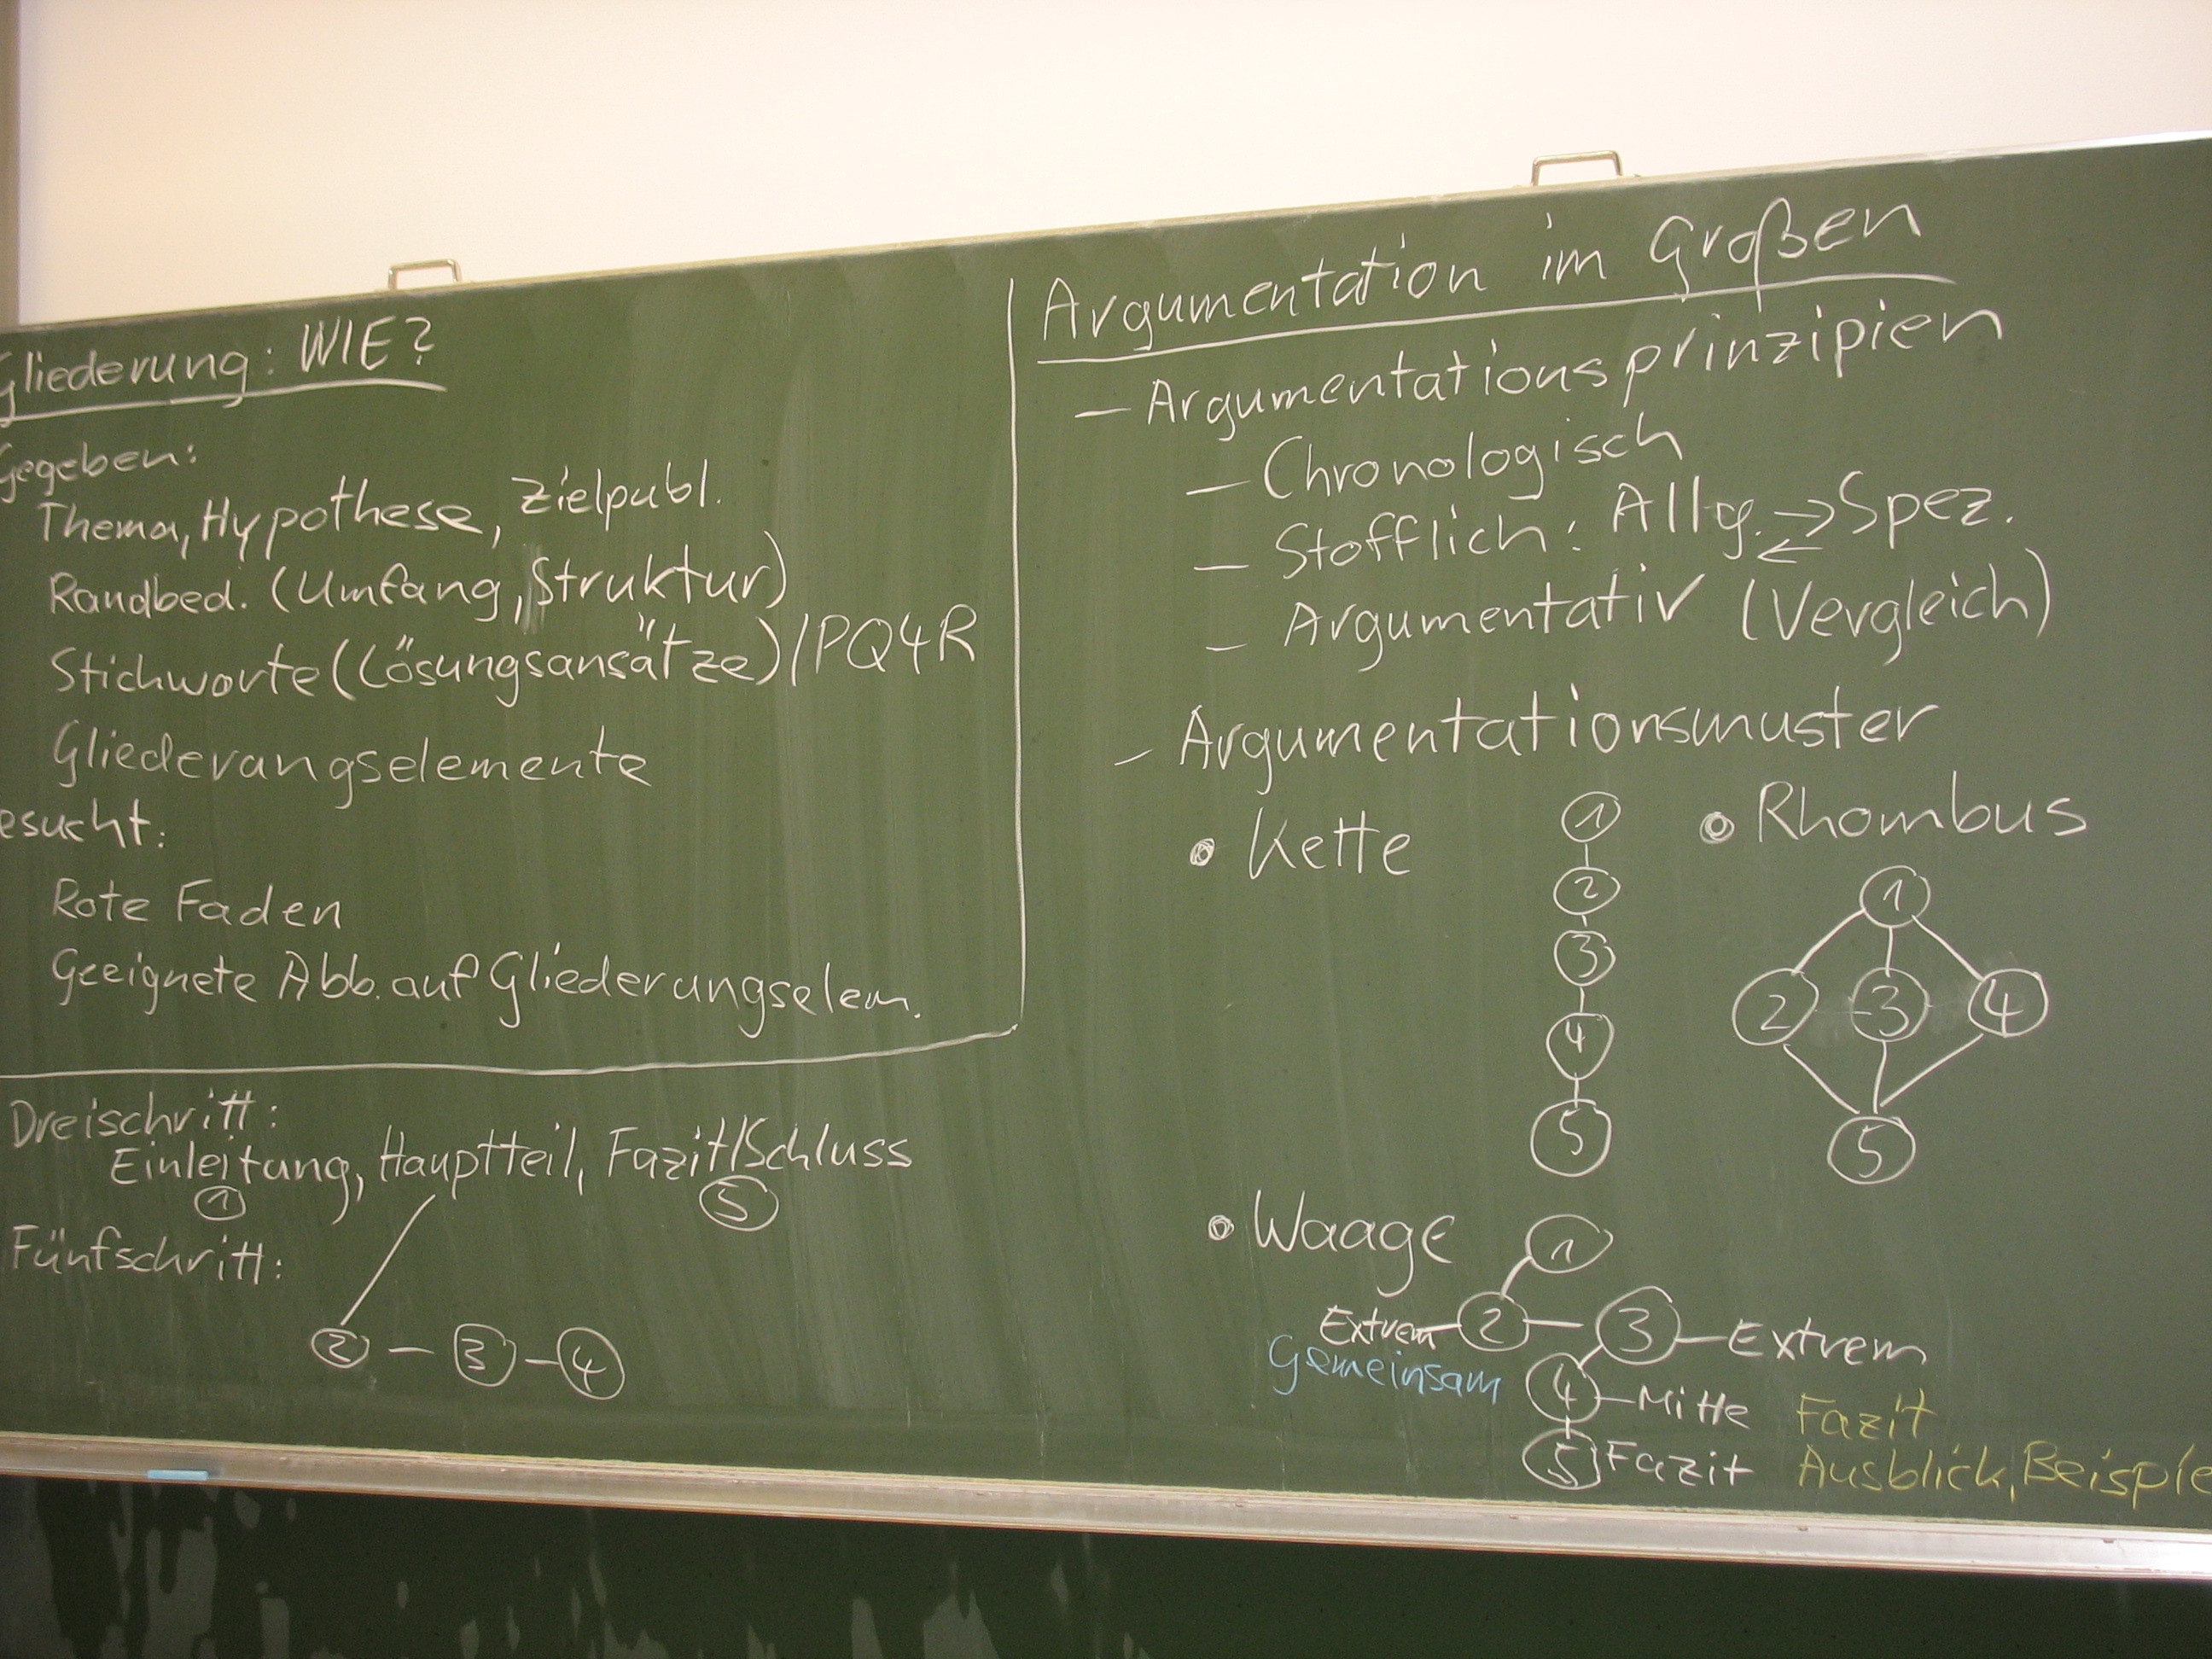 Gliederung: WIE?
Gegeben:
Thema, Hypothese, Zielpubl.
Randbed. (Umfang, Struktur)
Stichworte (Lösungsansätze) / PQ4R
Gliederungselemente
esucht:
Rote Faden
Geeignete Abb. auf Gliederungselem.
Dreischritt:
Einleitung, Hauptteil, Fazit/Schluss
1 5
Fünfschritt:
2 – 3 – 4
Argumentation im Großen
– Argumentationsprinzipien
– Chronologisch
– Stofflich: Allg. → Spez.
←
– Argumentativ (Vergleich)
– Argumentationsmuster
• Kette
1
2
3
4
5
• Rhombus
1
2 3 4
5
• Waage
1
Extrem – 2 – 3 – Extrem
Gemeinsam
4 – Mitte Fazit
5 Fazit Ausblick, Beispie